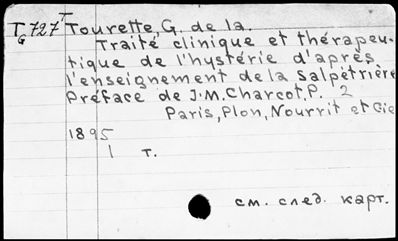 T
TG 727 Tourette G. de la.
Traité clinique et thérapeu-
tique de l'hystérie d'après
l'enseignement de la Salpétrière
Préface de J.M.Charcot.P. 2
Paris, Plon, Nourrit et Cie
1895
1 т.
см. след. карт.